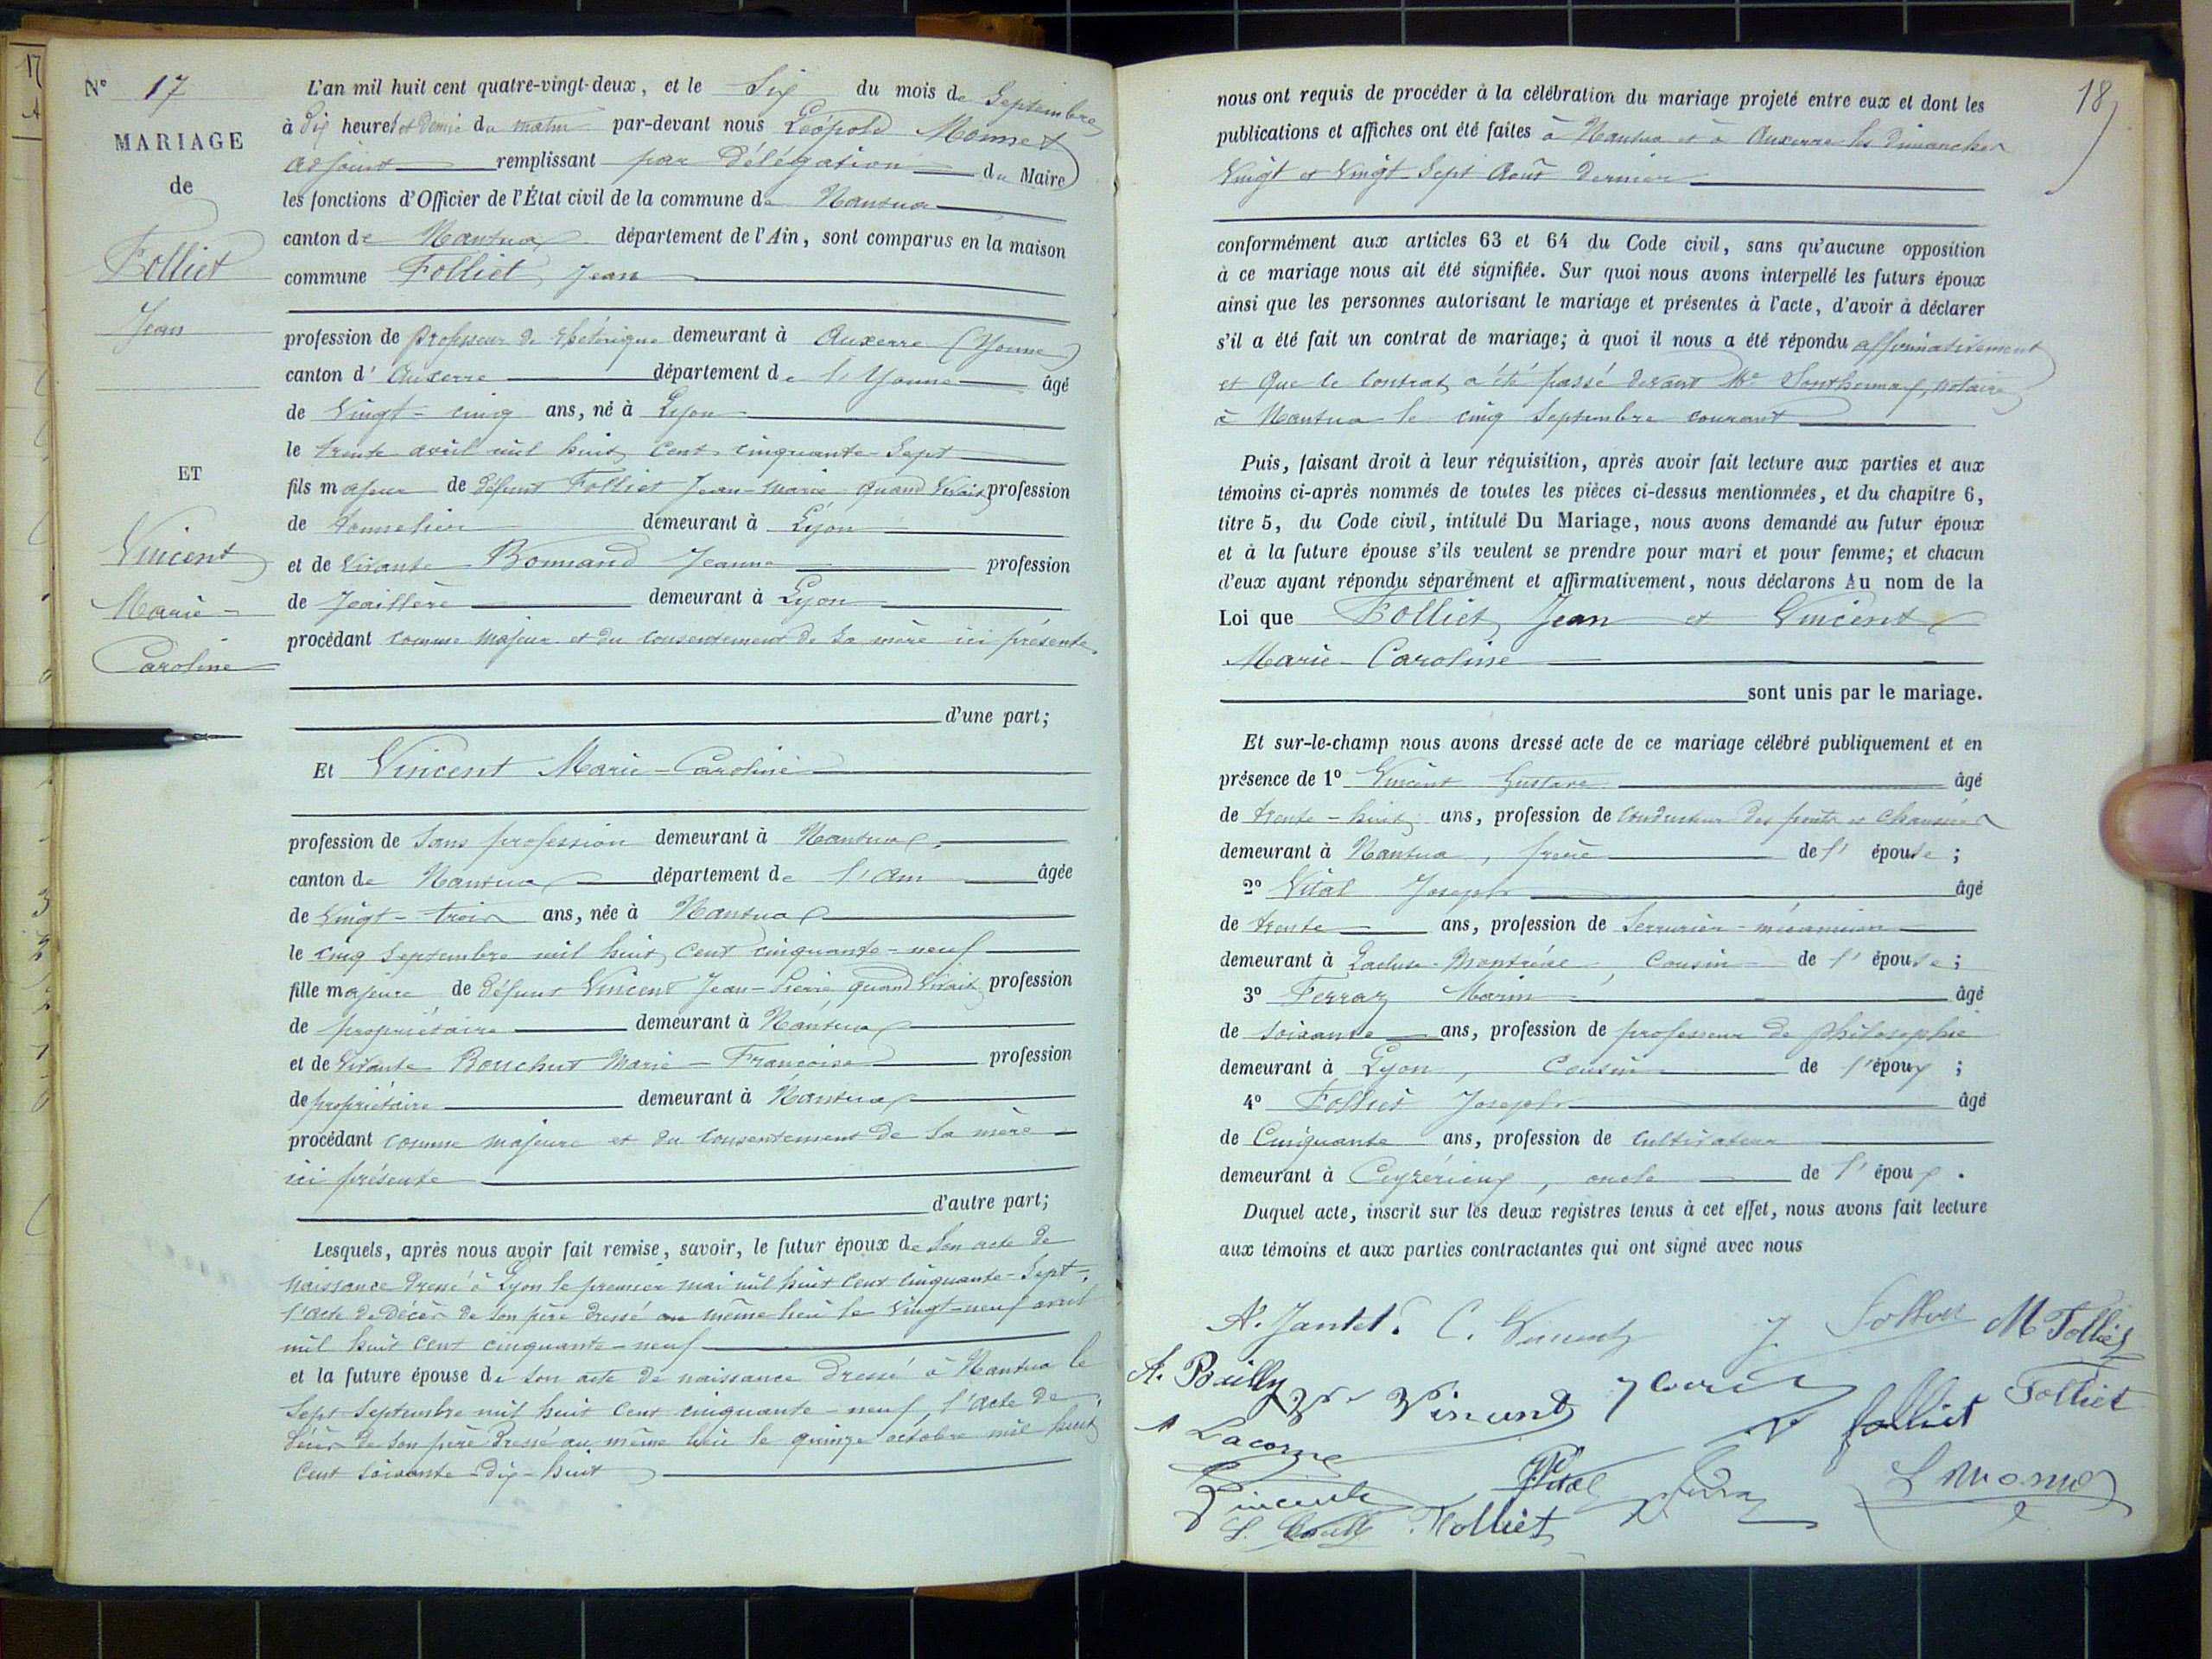 N° 17
MARIAGE
de
Folliet
Jean
ET
Vincent
Marie-
Caroline
L'an mil huit cent quatre-vingt-deux, et le Six du mois de Septembre
à dix heures et demie du matin par-devant nous Léopold Monnet
adjoint remplissant par délégation du Maire
les fonctions d'Officier de l'État civil de la commune de Nantua
canton de Nantua département de l'Ain, sont comparus en la maison
commune Folliet Jean
profession de professeur de rhétorique demeurant à Auxerre (Yonne)
canton d'Auxerre département de l'Yonne âgé
de Vingt-cinq ans, né à Lyon
le trente avril mil huit cent cinquante-Sept
fils majeur de défunt Folliet Jean-Marie quand vivait profession
de tonnelier demeurant à Lyon
et de vivante Bonnand Jeanne profession
de demeurant à Lyon
procédant comme majeur et du consentement de sa mère ici présente
d'une part;
Et Vincent Marie-Caroline
profession de Sans profession demeurant à Nantua
canton de Nantua département de l'Ain âgée
de Vingt-trois ans, née à Nantua
le cinq Septembre mil huit cent cinquante-neuf
fille majeure de défunt Vincent Jean-Pierre, quand vivait profession
de propriétaire demeurant à Nantua
et de vivante Bouchut Marie-Françoise profession
de propriétaire demeurant à Nantua
procédant comme majeure et du consentement de sa mère
ici présente
d'autre part;
Lesquels, après nous avoir fait remise, savoir, le futur époux de son acte de
naissance dressé à Lyon le premier mai mil huit cent cinquante-Sept,
l'acte de décès de son père dressé au même lieu le vingt-neuf avril
mil huit cent cinquante-neuf
et la future épouse de son acte de naissance dressé à Nantua le
Sept Septembre mil huit cent cinquante-neuf, l'acte de
décès de son père dressé au même lieu le quinze octobre mil huit
cent soixante-dix-huit
18
nous ont requis de procéder à la célébration du mariage projeté entre eux et dont les
publications et affiches ont été faites à Nantua et à Auxerre les dimanches
Vingt et Vingt-Sept Août dernier
conformément aux articles 63 et 64 du Code civil, sans qu'aucune opposition
à ce mariage nous ait été signifiée. Sur quoi nous avons interpellé les futurs époux
ainsi que les personnes autorisant le mariage et présentes à l'acte, d'avoir à déclarer
s'il a été fait un contrat de mariage; à quoi il nous a été répondu affirmativement
et que le contrat a été passé devant Me Sonthonnax, notaire
à Nantua le cinq Septembre courant
Puis, faisant droit à leur réquisition, après avoir fait lecture aux parties et aux
témoins ci-après nommés de toutes les pièces ci-dessus mentionnées, et du chapitre 6,
titre 5, du Code civil, intitulé Du Mariage, nous avons demandé au futur époux
et à la future épouse s'ils veulent se prendre pour mari et pour femme; et chacun
d'eux ayant répondu séparément et affirmativement, nous déclarons Au nom de la
Loi que Folliet Jean et Vincent
Marie-Caroline
sont unis par le mariage.
Et sur-le-champ nous avons dressé acte de ce mariage célébré publiquement et en
présence de 1° Vincent Gustave âgé
de trente-huit ans, profession de conducteur des ponts et chaussées
demeurant à Nantua, frère de l'épouse;
2° Vital Joseph âgé
de trente ans, profession de Serrurier-mécanicien
demeurant à Lacluse-Montréal, Cousin de l'épouse;
3° Ferraz Marin âgé
de soixante ans, profession de professeur de philosophie
demeurant à Lyon, Cousin de l'époux;
4° Folliet Joseph âgé
de Cinquante ans, profession de cultivateur
demeurant à Ceyzérieux, oncle de l'époux.
Duquel acte, inscrit sur les deux registres tenus à cet effet, nous avons fait lecture
aux témoins et aux parties contractantes qui ont signé avec nous
A. Jantet. C. Vincent J Folliet M Folliet
A. Bailly Vincent folliet Folliet
Lacorne
Vincent Vital L Monnet
Folliet